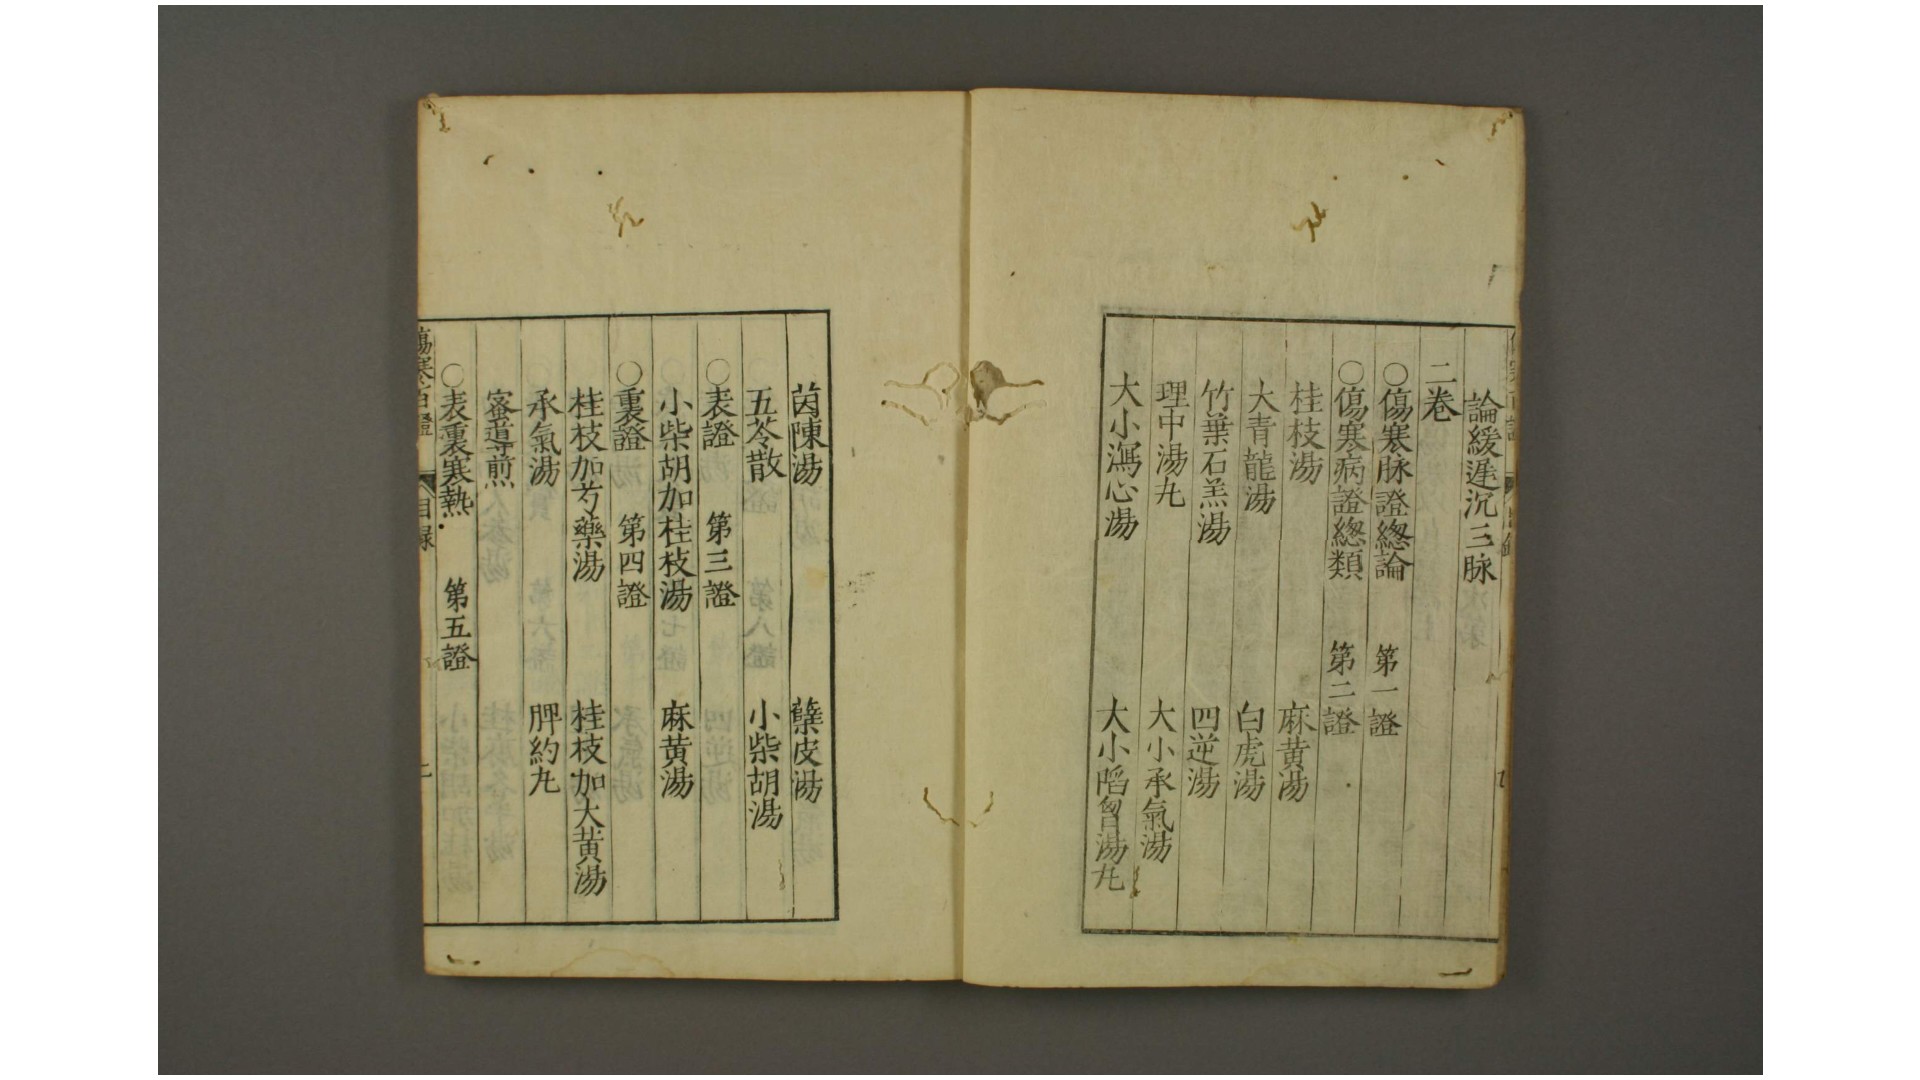 論緩遲沉三脉
二卷
○傷寒脉證緫論 第一證
○傷寒病證緫類 第二證
桂枝湯 麻黄湯
大青龍湯 白虎湯
竹葉石羔湯 四逆湯
理中湯丸 大小承氣湯
大小瀉心湯 大小陷胷湯丸
茵陳湯 蘗皮湯
五苓散 小柴胡湯
○表證 第三證
小柴胡加桂枝湯 麻黄湯
○裏證 第四證
桂枝加芍藥湯 桂枝加大黄湯
承氣湯 脾約丸
蜜導煎
○表裏寒熱 第五證
傷寒百證 目録 二